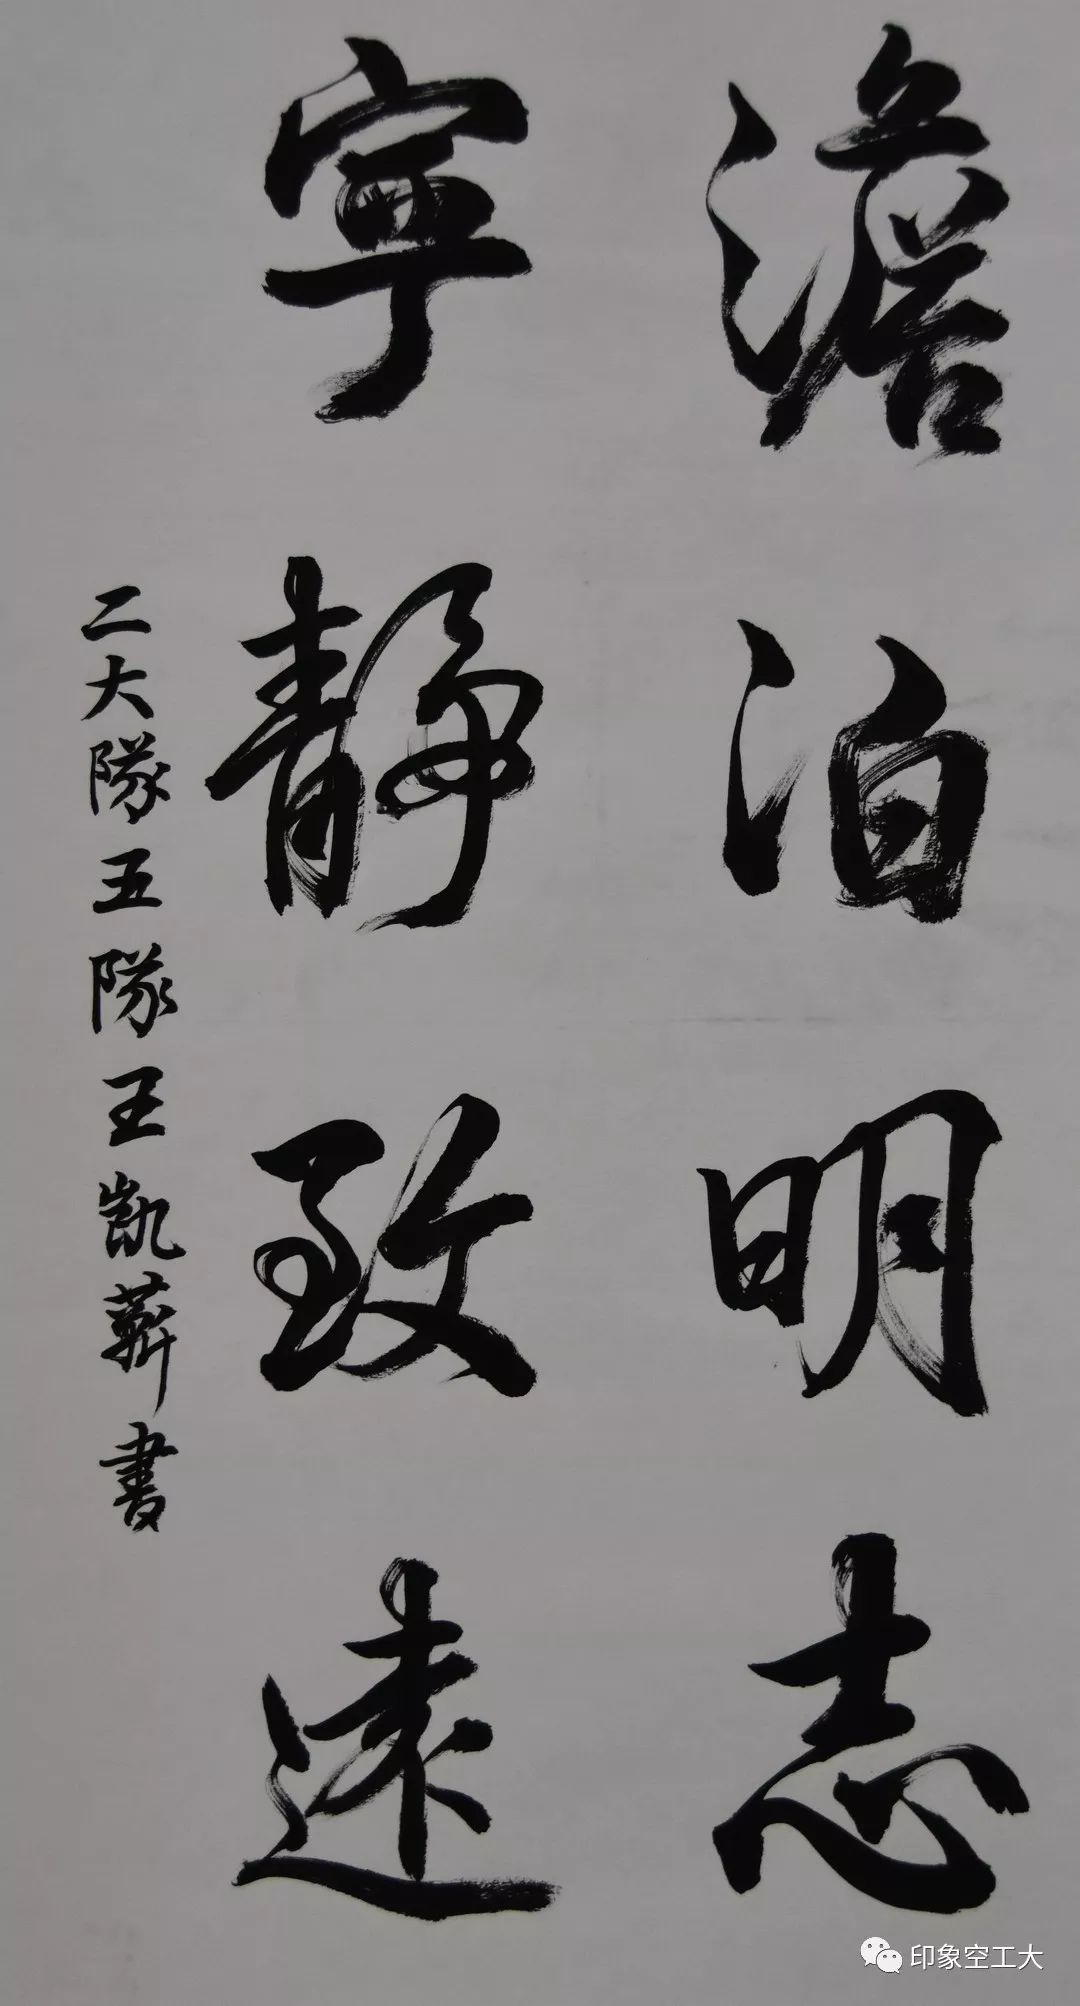 澹泊明志
寧靜致遠
二大隊五隊王凱薪書
印象空工大